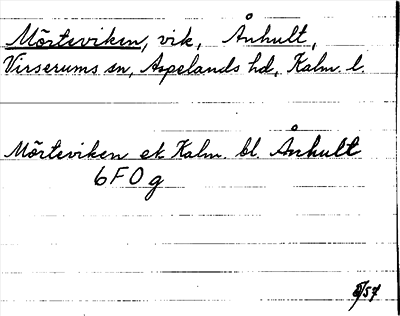 Mörteviken, vik, Ånhult,
Virserums sn, Aspelands hd, Kalm. l.
Mörteviken ek Kalm. bl. Ånhult
6F0g
/57